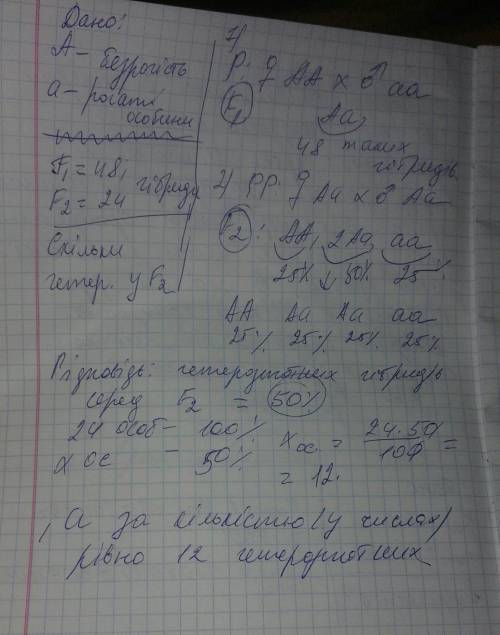 Дано:
А – безрогість
а – рогаті
особини
F₁ = 48,
F₂ = 24 гібриди
Скільки
гетер. у F₂
1)
P: ♀ AA x ♂ aa
F₁
Aa
48 таких
гібридів
2) PP: ♀ Aa x ♂ Aa
F₂: AA, 2Aa, aa
25% ↓ 50% 25%
AA Aa Aa aa
25% 25% 25% 25%
Відповідь: гетерозиготних гібридів
серед F₂ = 50%
24 особ – 100%
x ос – 50%
x ос. = 24·50/100 =
= 12.
, а за кількістю (у числах)
рівно 12 гетерозиготних